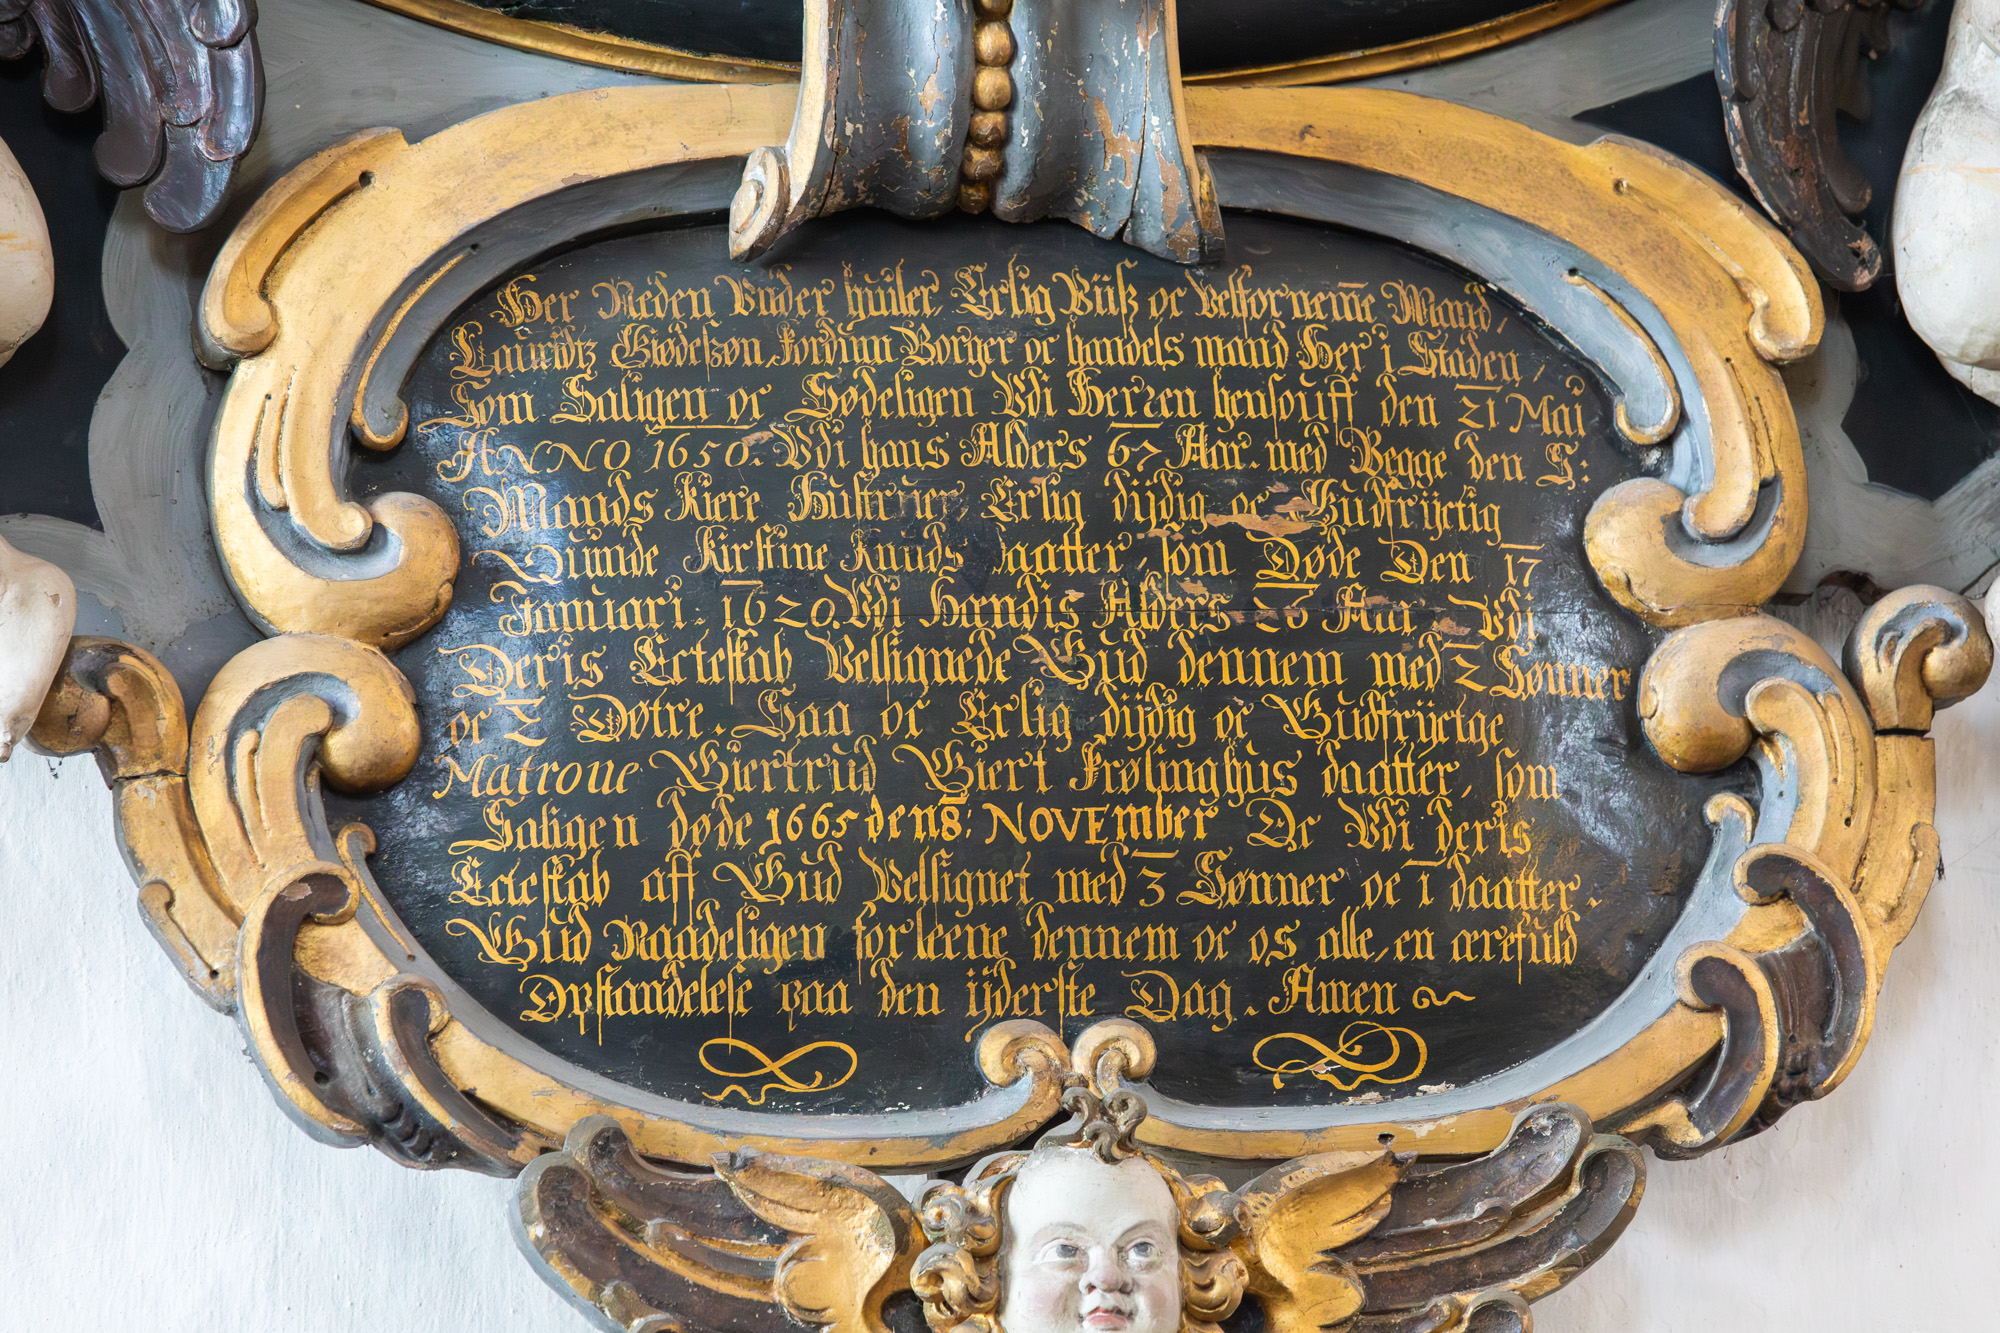 Her Neden Vnder huiler, Erlig Viiß oc Velfornem̄e Mand,
Lauridtz Giødeßøn, fordum Borger oc handels mand Her i Staden,
Som Saligen oc Sødeligen Vdi Herren hensouff den 21 Mai
ANNO 1650. Vdi hans Alders 67 Aar. med Begge den S:
Mands Kiere Hustruer, Erlig dÿdig oc Gudfrÿctig
Quinde Kirstine Knuds daatter, som Døde Den 17
Januari. 1620. Vdi Hændis Alders 26 Aar. Vdi
Deris Ecteskab Velsignede Gud dennem med 2 Sønner
oc 2 Døtre. Saa oc Erlig dÿdig oc Gudfrÿctge
Matrone Giertrud Giert Frølinghus daatter, som
Saligen døde 1665 den 8: NOVEmber Oc Vdi deris
Ecteskab aff Gud Velsignet med 3 Sønner oc 1 daatter.
Gud Naadeligen forleene dennem oc os alle, en ærefuld
Opstandelese paa den ÿderste Dag. Amen